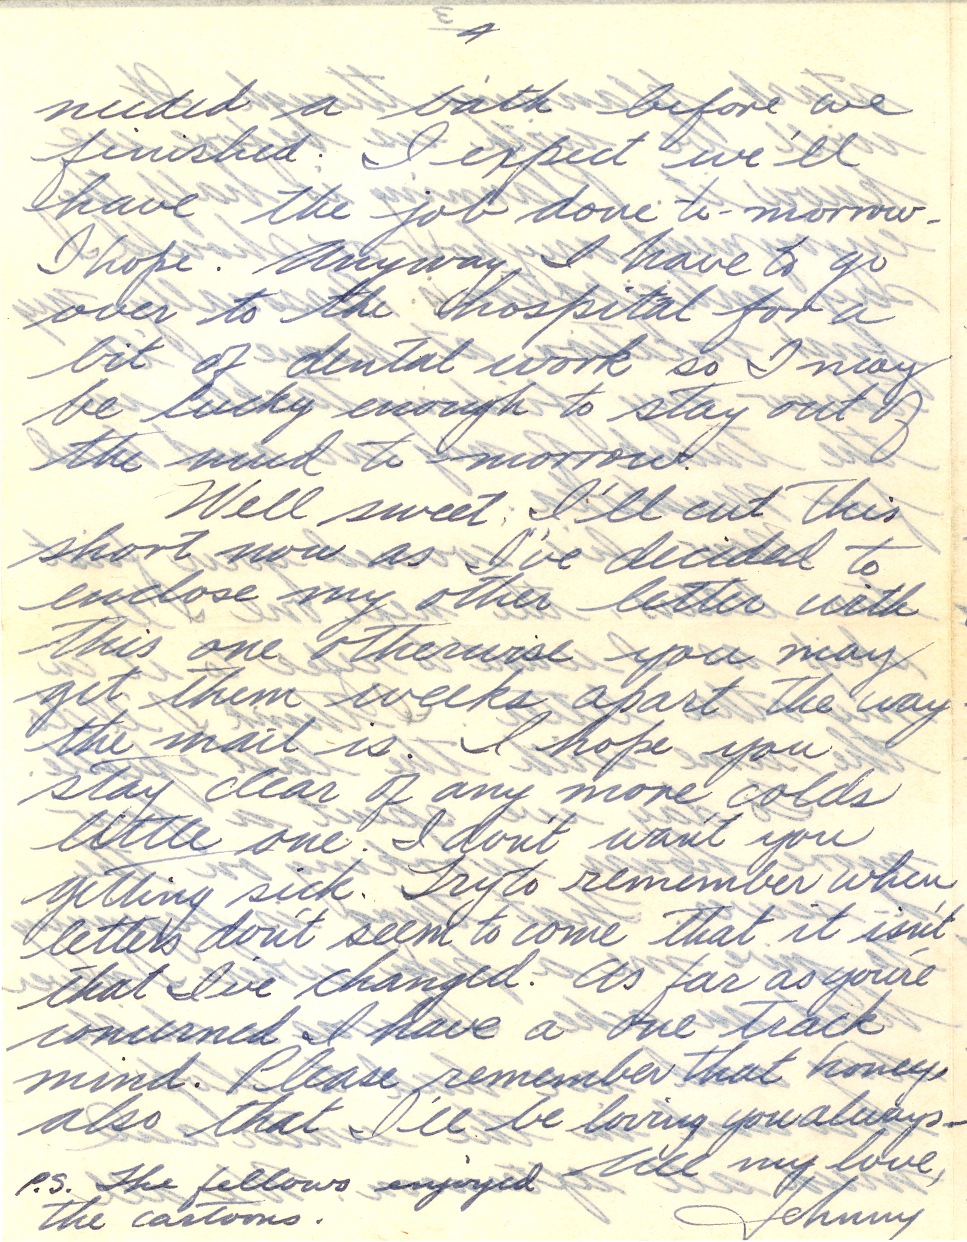 4
needed a bath before we
finished. I expect we'll
have the job done to-morrow-
I hope. Anyway I have to go
over to the hospital for a
bit of dental work so I may
be lucky enough to stay out of
the mud to-morrow.
Well sweet, I'll cut this
short now as I've decided to
enclose my other letter with
this one otherwise you may
get them weeks apart the way
the mail is. I hope you
stay clear of any more colds
little one. I don't want you
getting sick. Try to remember when
letters don't seem to come that it isn't
that I've changed. As far as you're
concerned I have a one track
mind. Please remember that honey,
also that I'll be loving you always-
All my love,
Johnny
P.S. The fellows enjoyed
the cartoons.